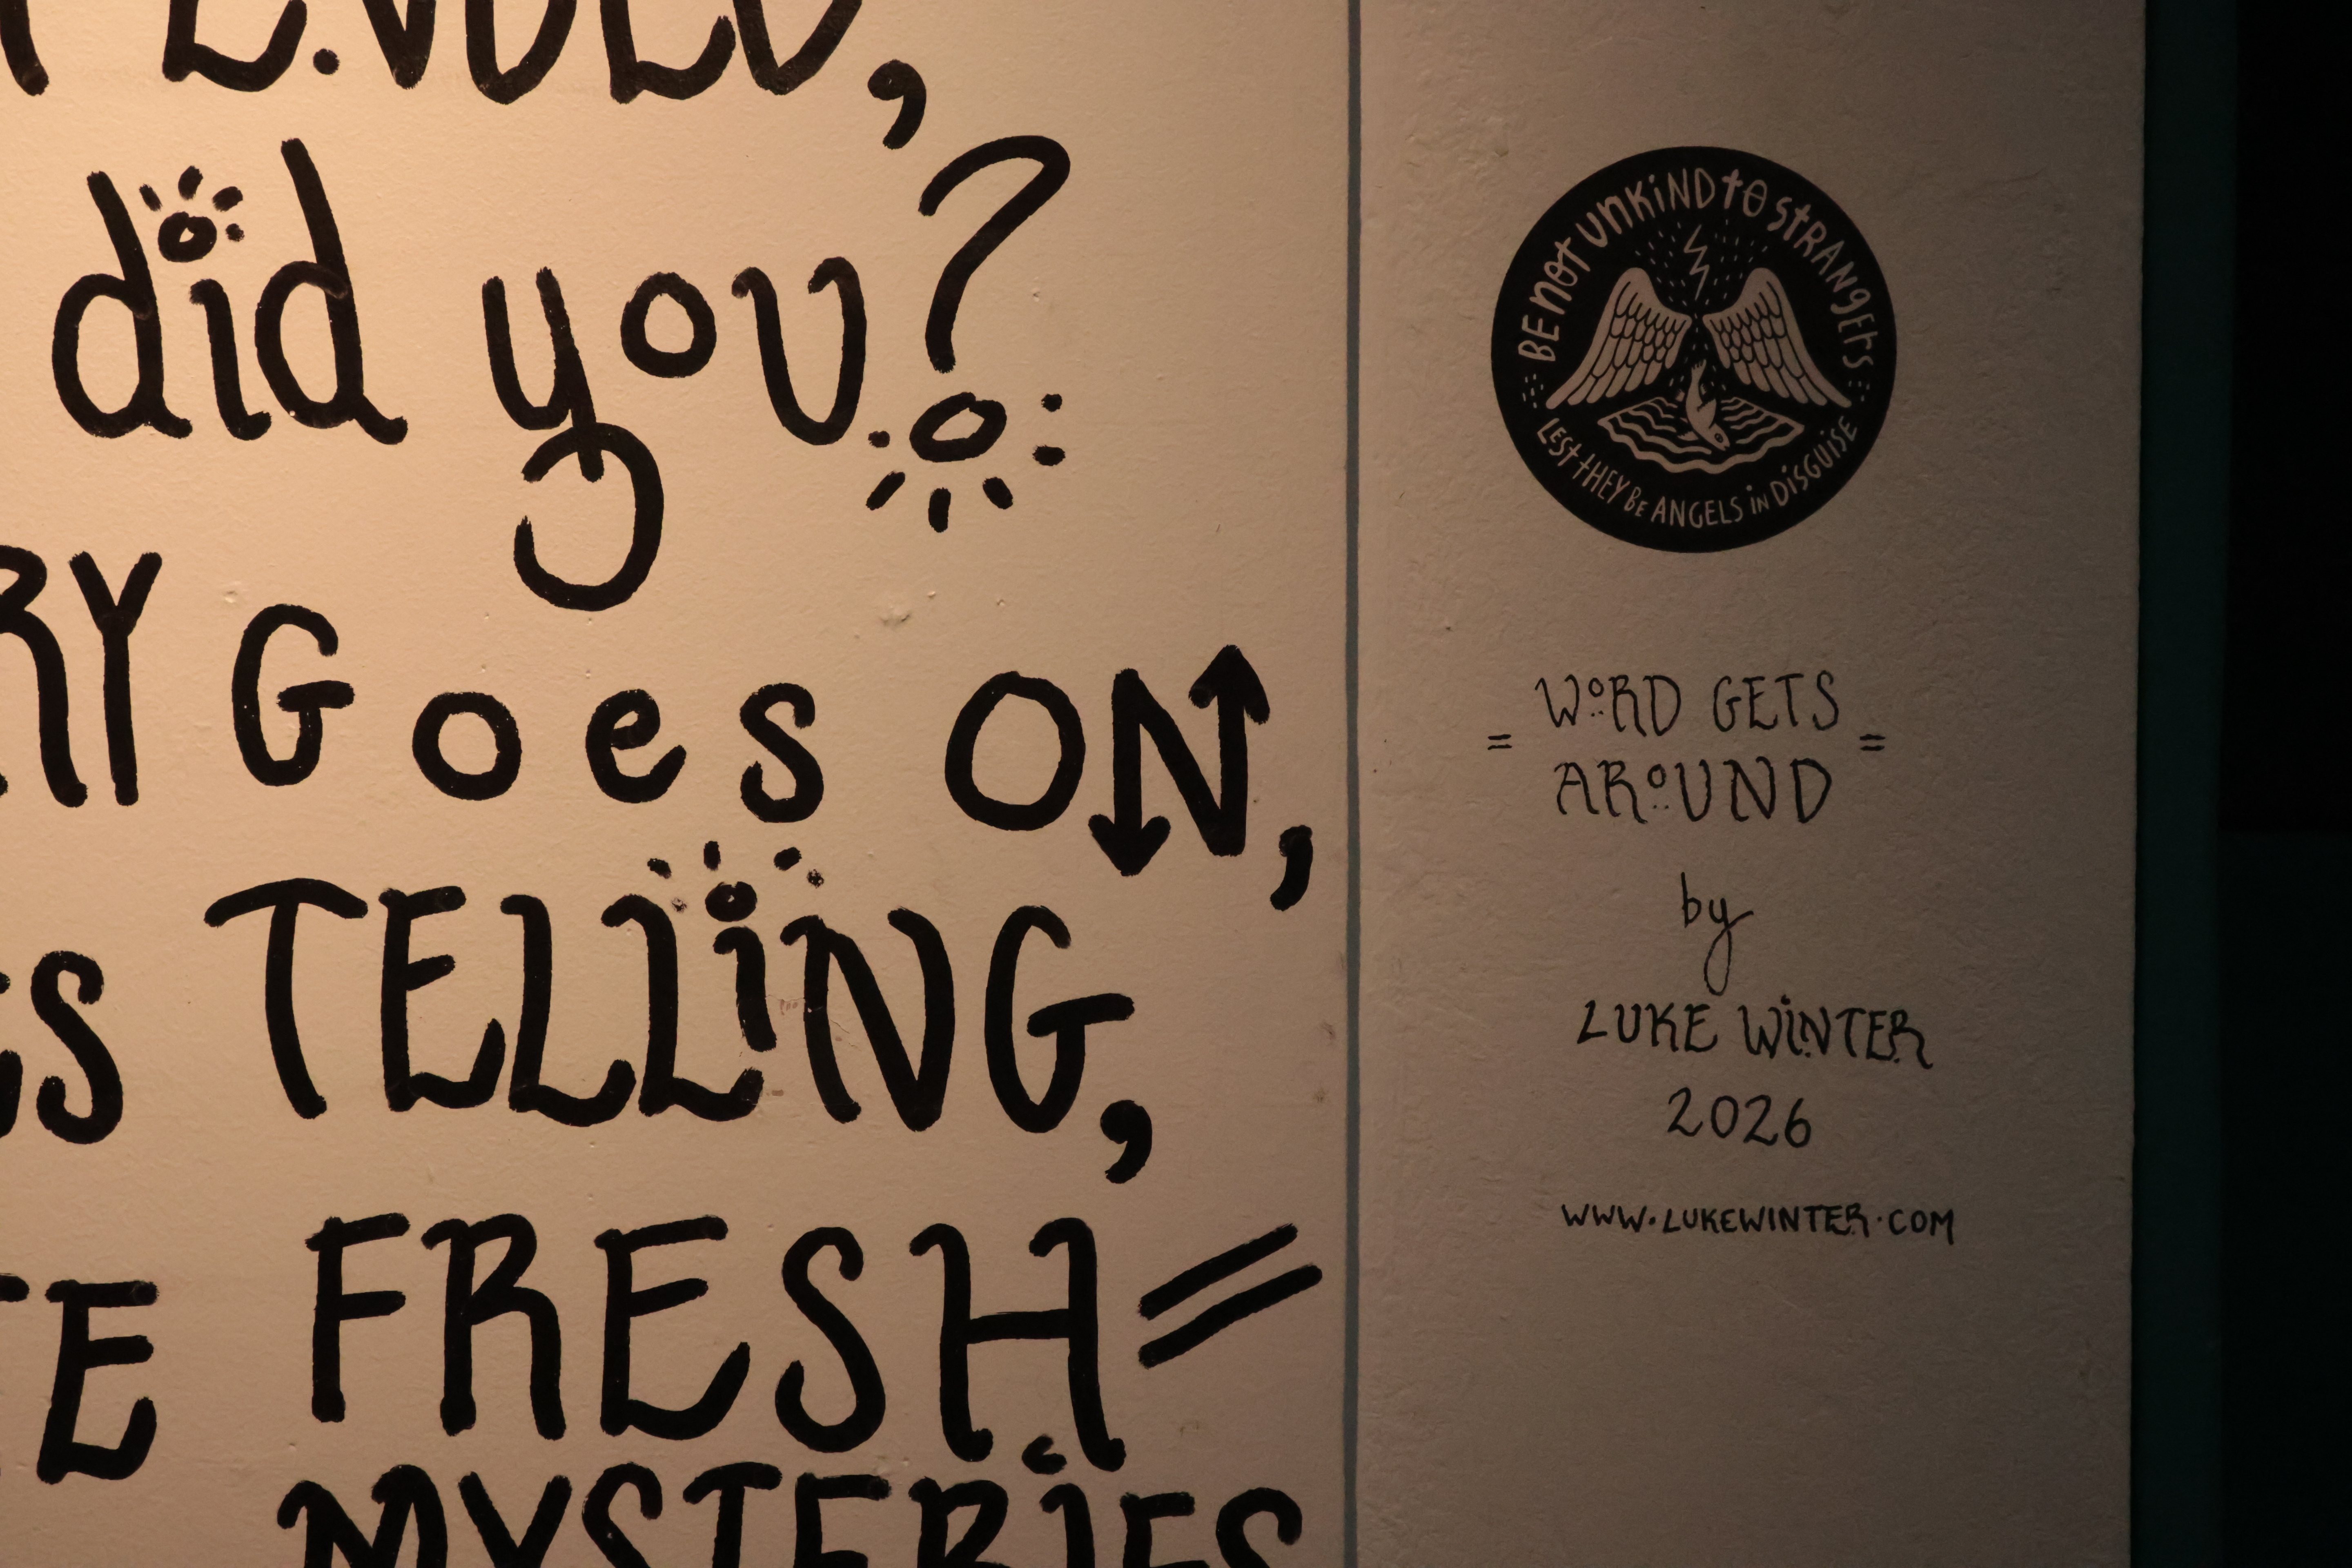 ENDED,
did you?
RY Goes ON,
S TELLiNG,
TE FRESH=
MYSTERiES
BE not UNKiND tO StRANgErS
LESt tHEY BE ANGELS iN DiSGUiSE
= WoRD GETS =
ARoUND
by
LUKE WiNTER
2026
WWW.LUKEWINTER.COM